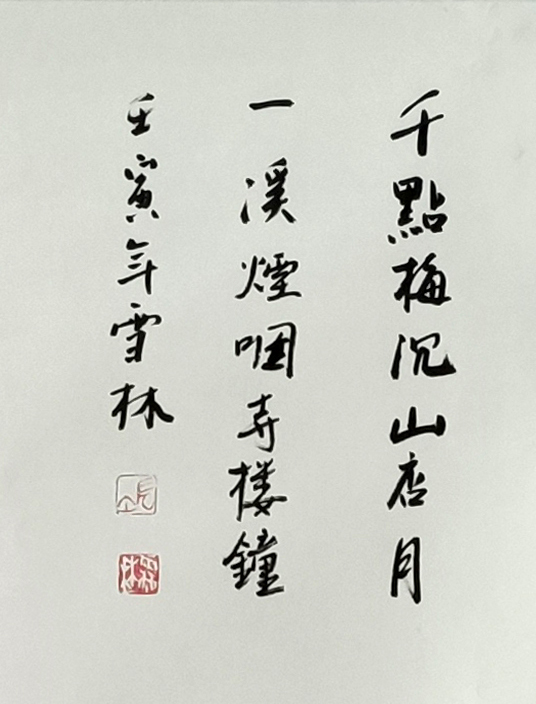 千點梅沉山店月
一溪煙咽寺楼鐘
壬寅年雪林